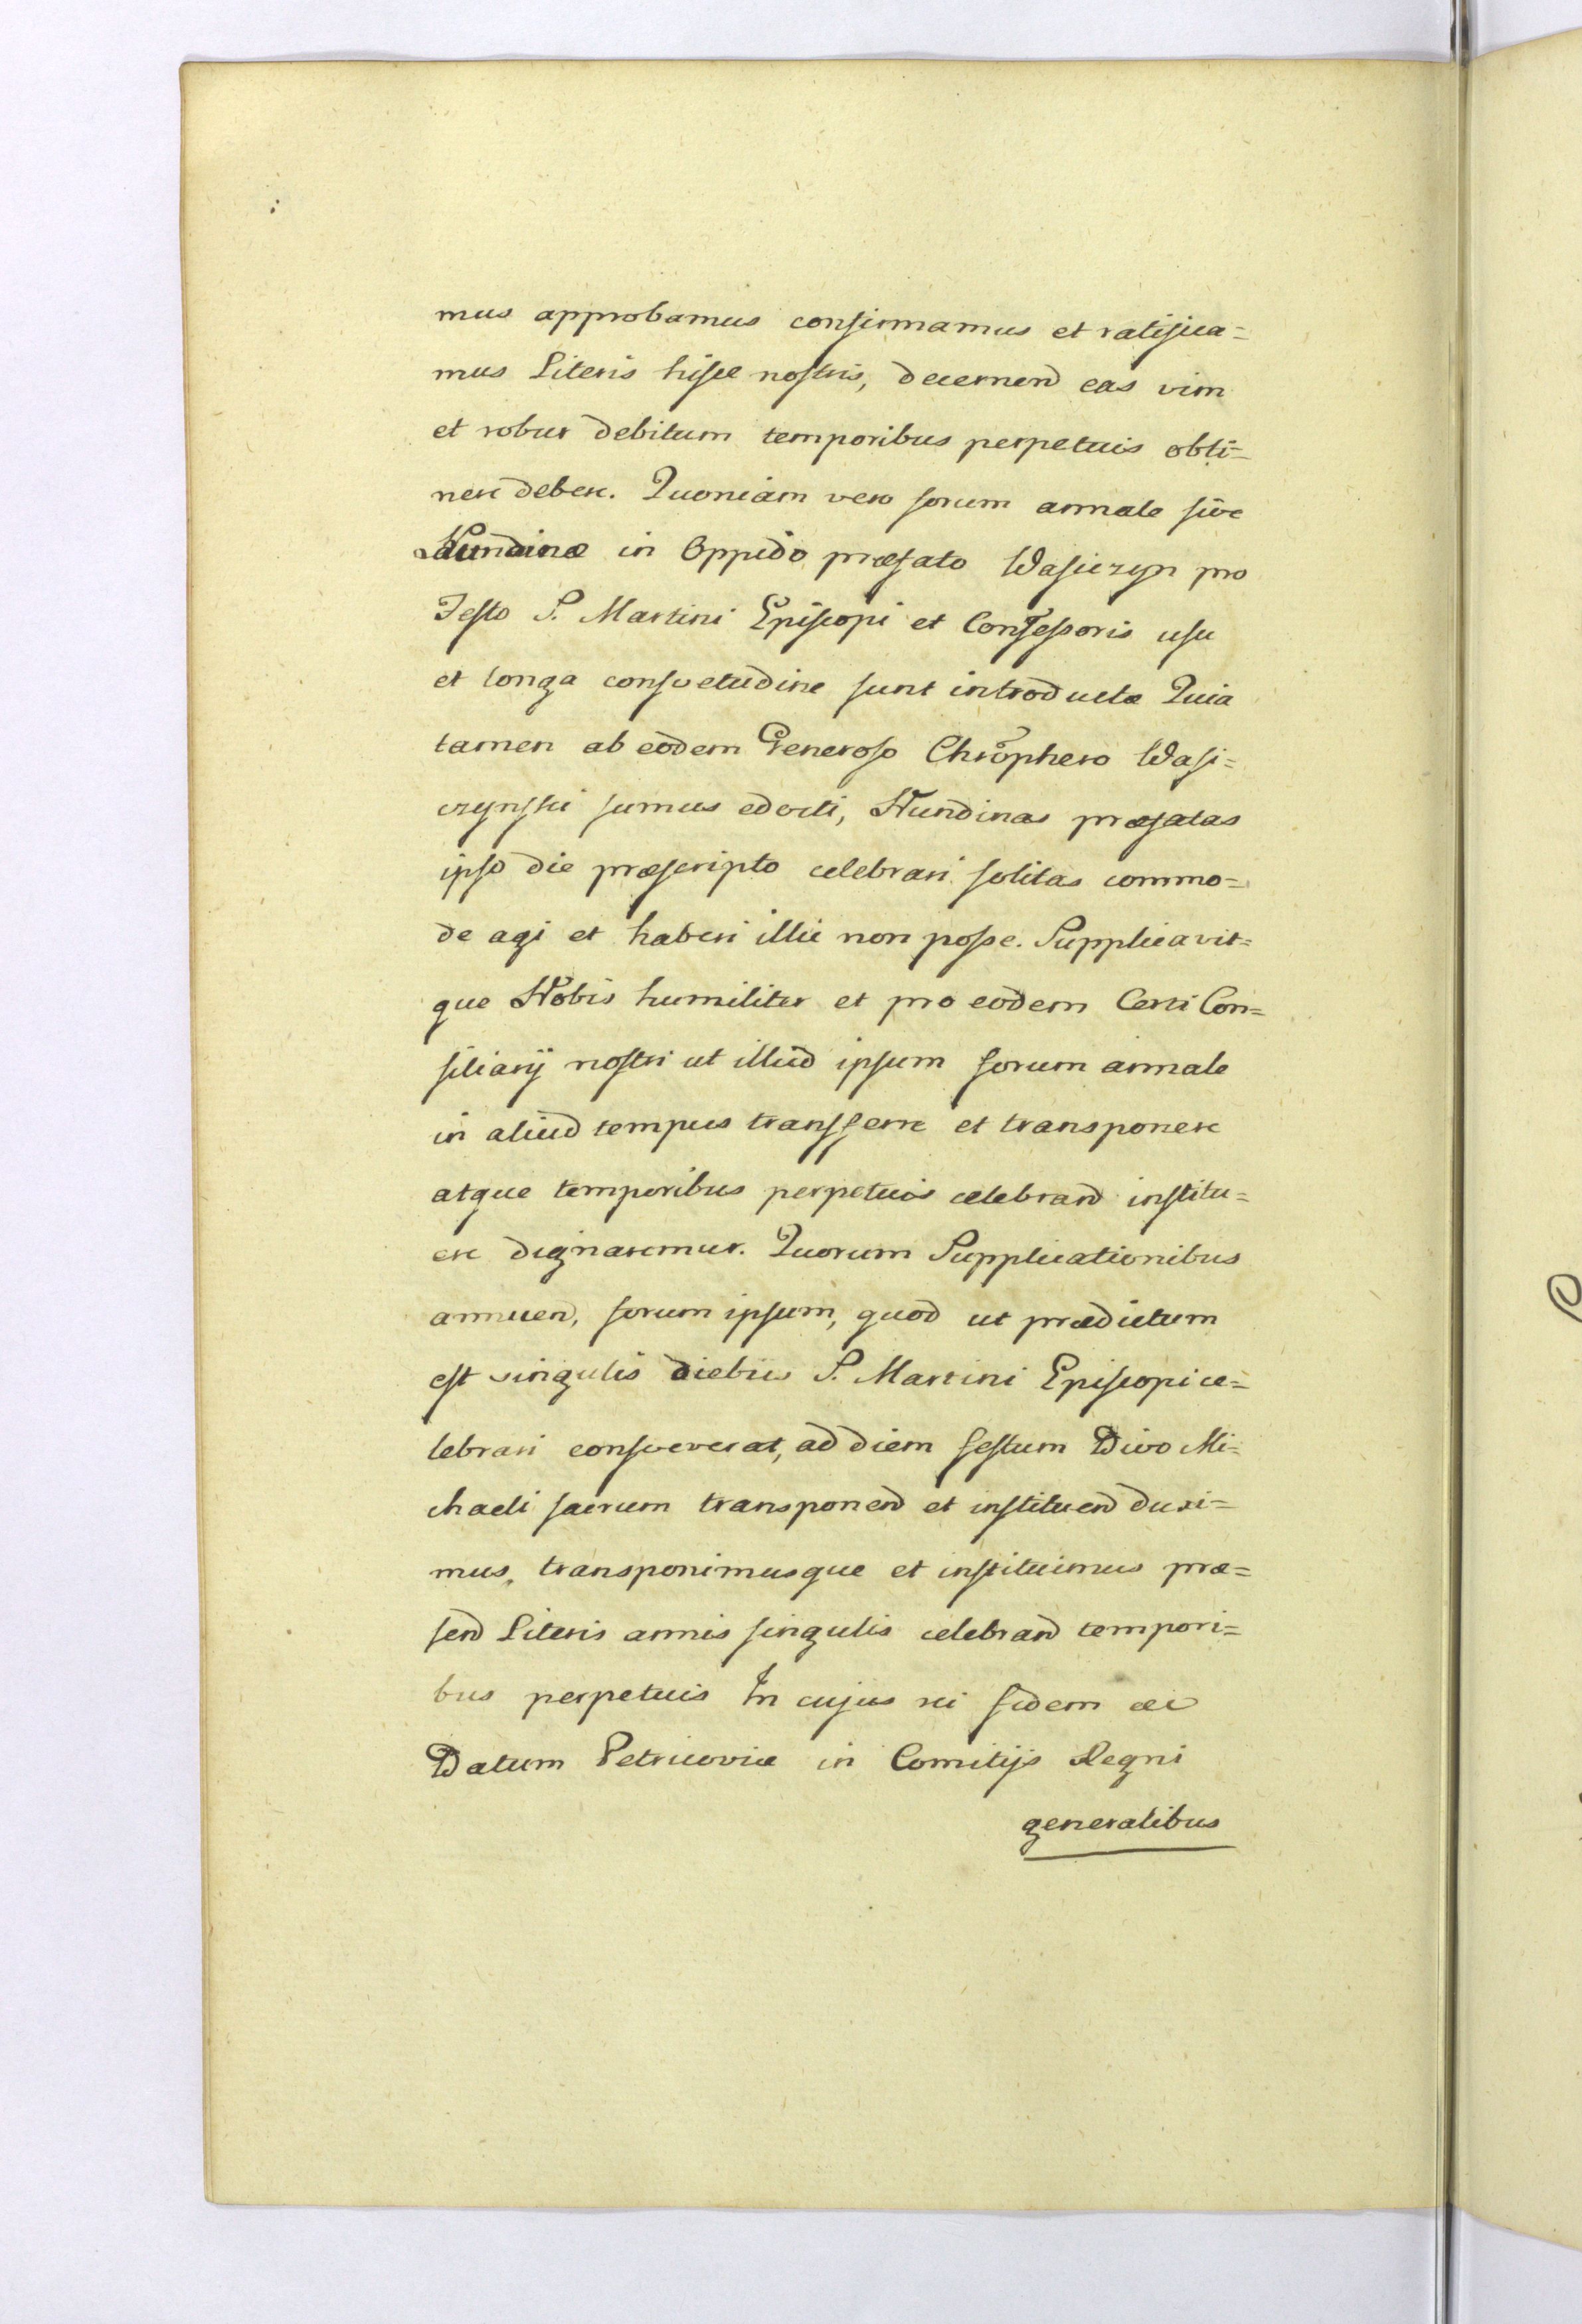 mus approbamus confirmamus et ratifica=
mus Literis hisce nostris, decernend eas vim
et robur debitum temporibus perpetuis obti=
nere debere. Quoniam vero forum annale sive
Nundinæ in Oppido præfato Wasiczyn pro
Festo S. Martini Episcopi et Confessoris usu
et longa consvetudine sunt introductæ Quia
tamen ab eodem Generoso Chrophero Wasi=
czynski sumus edocti, Nundinas præfatas
ipso die præscripto celebrari solitas commo=
de agi et haberi illic non posse. Supplicavit=
que Nobis humiliter et pro eodem Certi Con=
siliarij nostri ut illud ipsum forum annale
in aliud tempus transferre et transponere
atque temporibus perpetuis celebrand institu=
ere dignaremur. Quorum Supplicationibus
annuen, forum ipsum, quod ut prædictum
est singulis diebus S. Martini Episcopi ce=
lebrari consveverat, ad diem festum Divo Mi=
chaeli sacrum transponend et instituend duxi=
mus, transponimusque et instituimus præ=
send Literis annis singulis celebrand tempori=
bus perpetuis In cujus rei fidem &c
Datum Petricoviæ in Comitijs Regni
generalibus